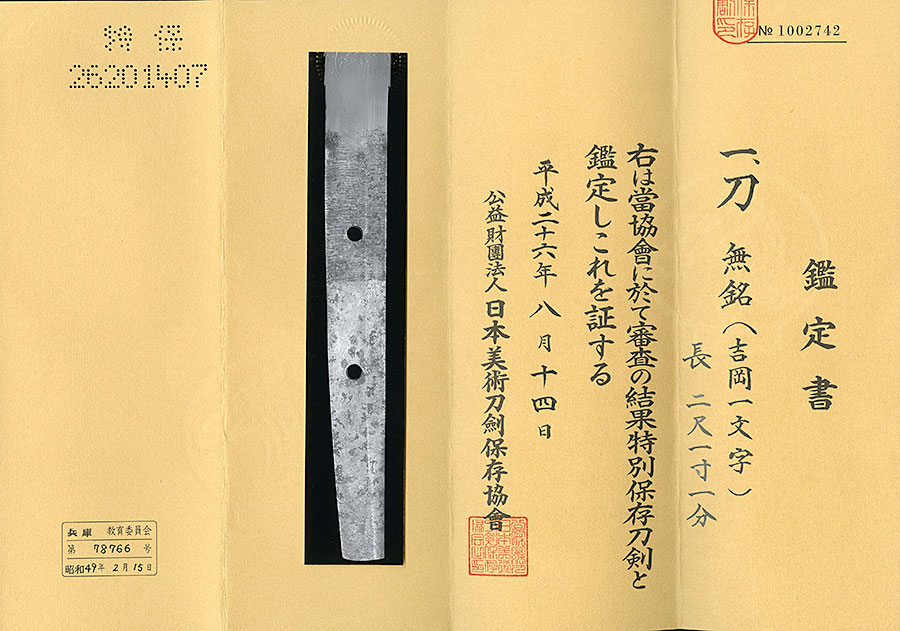 № 1002742
鑑定書
一、刀 無銘(吉岡一文字)
長 二尺一寸一分
右は當協會に於て審査の結果特別保存刀剣と
鑑定しこれを証する
平成二十六年 八月十四日
公益財團法人日本美術刀劍保存協會
特保
26201407
兵庫 教育委員会
第 78766 号
昭和49年2月15日